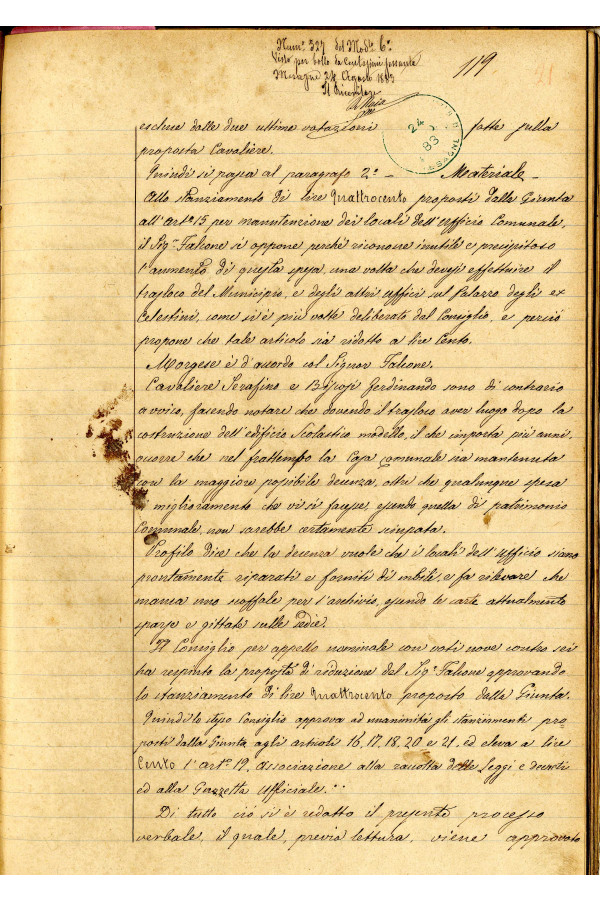 Num.º 327 del Mod.lo 6º
Visto per bollo da Centesimi sessanta
Mesagne 24 Agosto 1883
Il Ricevitore
119
21
24
83
MESAGNE
escluse dalle due ultime votazioni fatte sulla
proposta Cavaliere.
Quindi si passa al paragrafo 2º — Materiale —
Allo stanziamento di lire Quattrocento proposti dalla Giunta
all'Artº 15 per manutenzione dei locali dell'Ufficio Comunale,
il Sigr Falcone si oppone perché riconosce inutile e
l'aumento di questa spesa, una volta che devesi effettuire il
trasloco del Municipio, e degli altri uffici sul Palazzo degli ex
Celestini, come si è più volte deliberato dal Consiglio, e perciò
propone che tale articolo sia ridotto a lire Cento.
Morgese è d'accordo col Signor Falcone.
Cavaliere Serafino e Ferdinando sono di contrario
avviso, facendo notare che dovendo il trasloco aver luogo dopo la
costruzione dell'edificio Scolastico modello, il che importa più anni,
occorre che nel frattempo la Casa Comunale sia mantenuta
con la maggiore possibile decenza, oltre che qualunque spesa
di miglioramento che vi si facesse, essendo quella di patrimonio
Comunale, non sarebbe certamente sciupata.
Profilo dice che la decenza vuole che i locali dell'Ufficio siano
prontamente riparati e forniti di mobili, e fa rilevare che
manca uno scaffale per l'archivio, essendo le carte attualmente
sparse e gittate sulle sedie.
Il Consiglio per appello nominale con voti nove contro sei
ha respinto la proposta di riduzione del Sigr Falcone approvando
lo stanziamento di lire Quattrocento proposto dalla Giunta.
Quindi lo stesso Consiglio approva ad unanimità gli stanziamenti pro=
posti dalla Giunta agli articoli 16, 17, 18, 20 e 21, ed eleva a lire
Cento l'artº 19. Associazione alla raccolta delle Leggi e decreti
ed alla Gazzetta Ufficiale.
Di tutto ciò si è redatto il presente processo
verbale, il quale, previa lettura, viene approvato